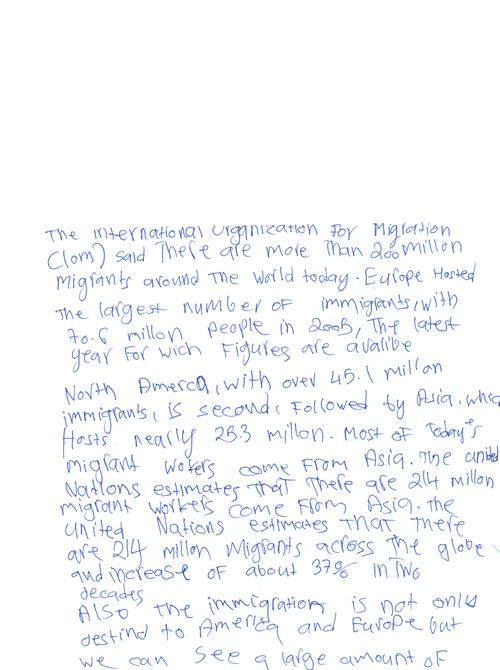 The International Organization For Migration
(Iom) said There are more Than 200 millon
Migrants around The World today. Europe Hosted
The largest number OF immigrants, with
70.6 millon People in 2005, The latest
year For wich Figures are avalible
North America, with over 45.1 millon
immigrants, is second, Followed by Asia. which
Hosts nearly 25.3 millon. Most of Today's
migrant wokers come From Asia. The united
Nations estimates That There are 214 millon
migrant workers come From Asia. The
united Nations estimates THAT There
are 214 millon Migrants across The globe,
and increase OF about 37% In Two
decades
Also The immigration is not only
destind to America and Europe but
we can see a large amount OF